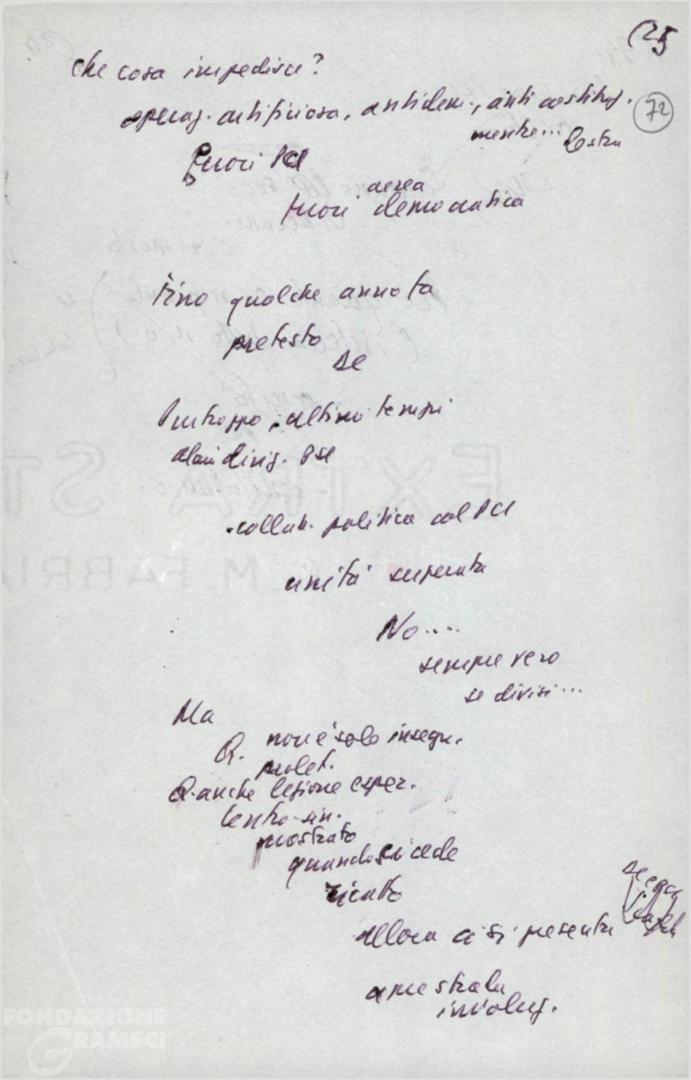 25
che cosa impedisce?
operaz. artificiosa, antidem., anti costituz.
72
mentre... 
fuori PCI
area
fuori democratica
Fino qualche anno fa
pretesto
se
Purtroppo ultimi tempi
alcuni dirig. PSI
collab. politica col PCI
unità superata
No....
sempre vero
se divisi...
Ma
Q. non è solo insegn.
prolet.
Q. anche lezione esper.
centro-sin.
mostrato
quando si cede
ricatto
allora ci si presenta
a me strada
involuz.
FONDAZIONE
GRAMSCI